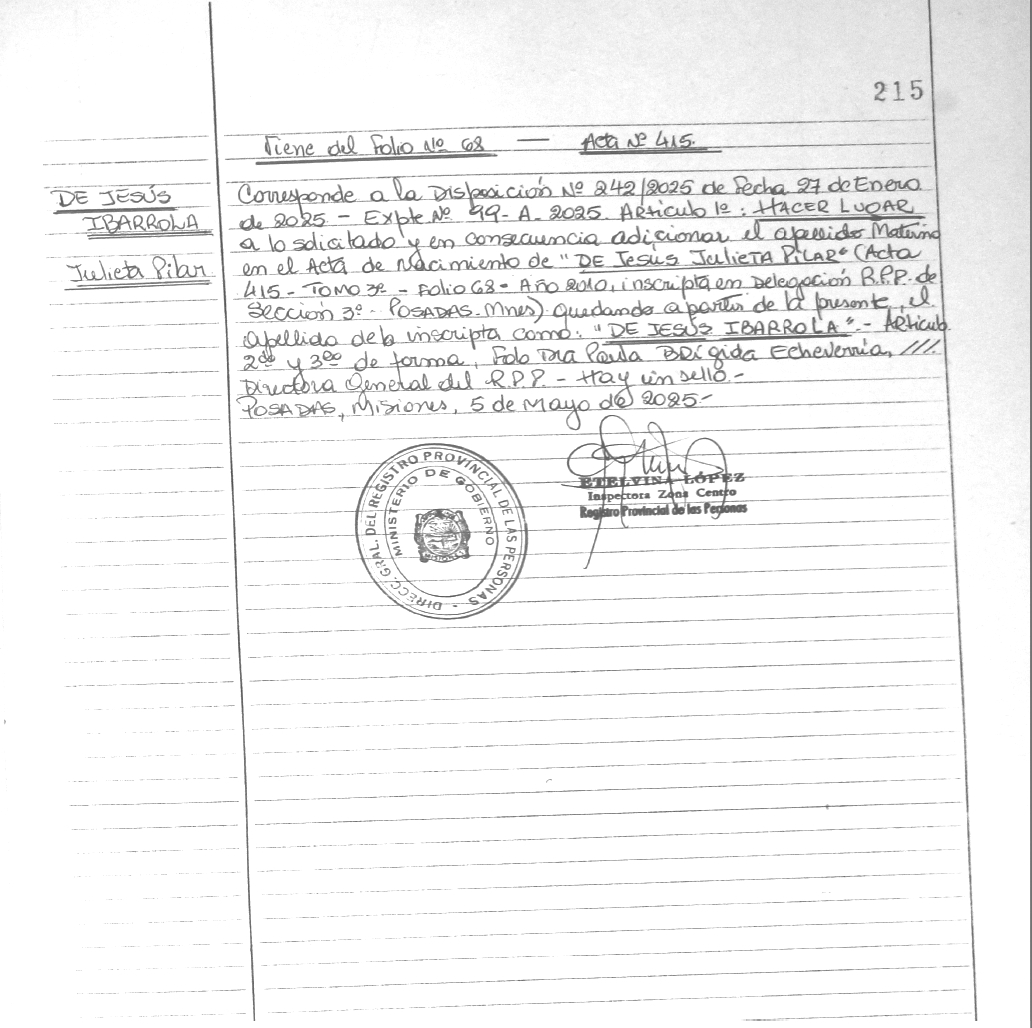 215
Viene del Folio Nº 68 — Acta Nº 415.
DE JESÚS
IBARROLA
Julieta Pilar
Corresponde a la Disposición Nº 242/2025 de fecha 27 de Enero
de 2025 - Expte Nº 99-A-2025. Artículo 1º: HACER LUGAR
a lo solicitado y en consecuencia adicionar el apellido Materno
en el Acta de Nacimiento de "DE JESÚS JULIETA PILAR" (Acta
415 - TOMO 3º - Folio 68 - Año 2010, inscripta en Delegación R.P.P. de
Sección 3º - POSADAS - Mnes) quedando a partir de la presente, el
apellido de la inscripta como: "DE JESÚS IBARROLA". - Artículo
2do y 3ero de forma, Fdo Dra Paula BRÍgida Echeverría, ///.
Directora General del R.P.P. - Hay un sello.-
POSADAS, Misiones, 5 de Mayo de 2025-
DIRECC. GRAL. DEL REGISTRO PROVINCIAL DE LAS PERSONAS -
MINISTERIO DE GOBIERNO
ETELVINA LÓPEZ
Inspectora Zona Centro
Registro Provincial de las Personas